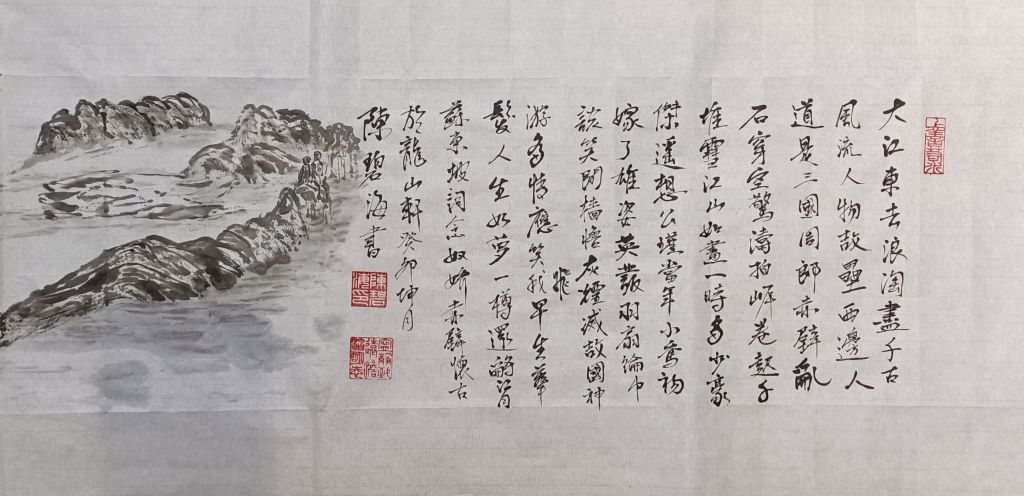 上善若水
大江東去浪淘盡千古
風流人物故壘西邊人
道是三國周郎赤壁亂
石穿空驚濤拍岸卷起千
堆雪江山如畫一時多少豪
傑遥想公瑾當年小喬初
嫁了雄姿英發羽扇綸巾
談笑間檣櫓灰煙滅故國神
飛
游多情應笑我早生華
髮人生如夢一樽還酹江月
蘇東坡詞念奴嬌赤壁懷古
於龍山軒癸卯坤月
陳碧海書
陳碧海印